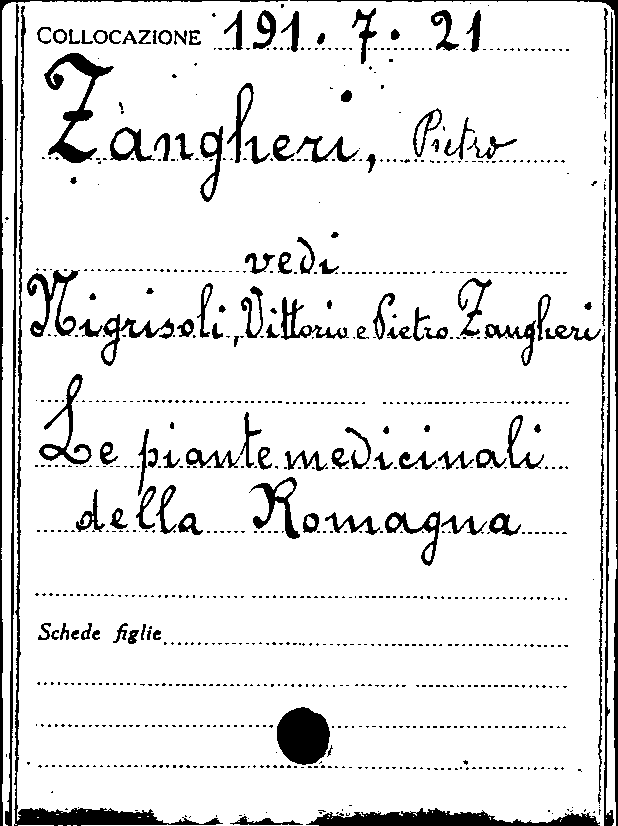 COLLOCAZIONE 191. 7. 21
Zangheri, Pietro
vedi
Nigrisoli, Vittorio e Pietro Zangheri
Le piante medicinali
della Romagna
Schede figlie